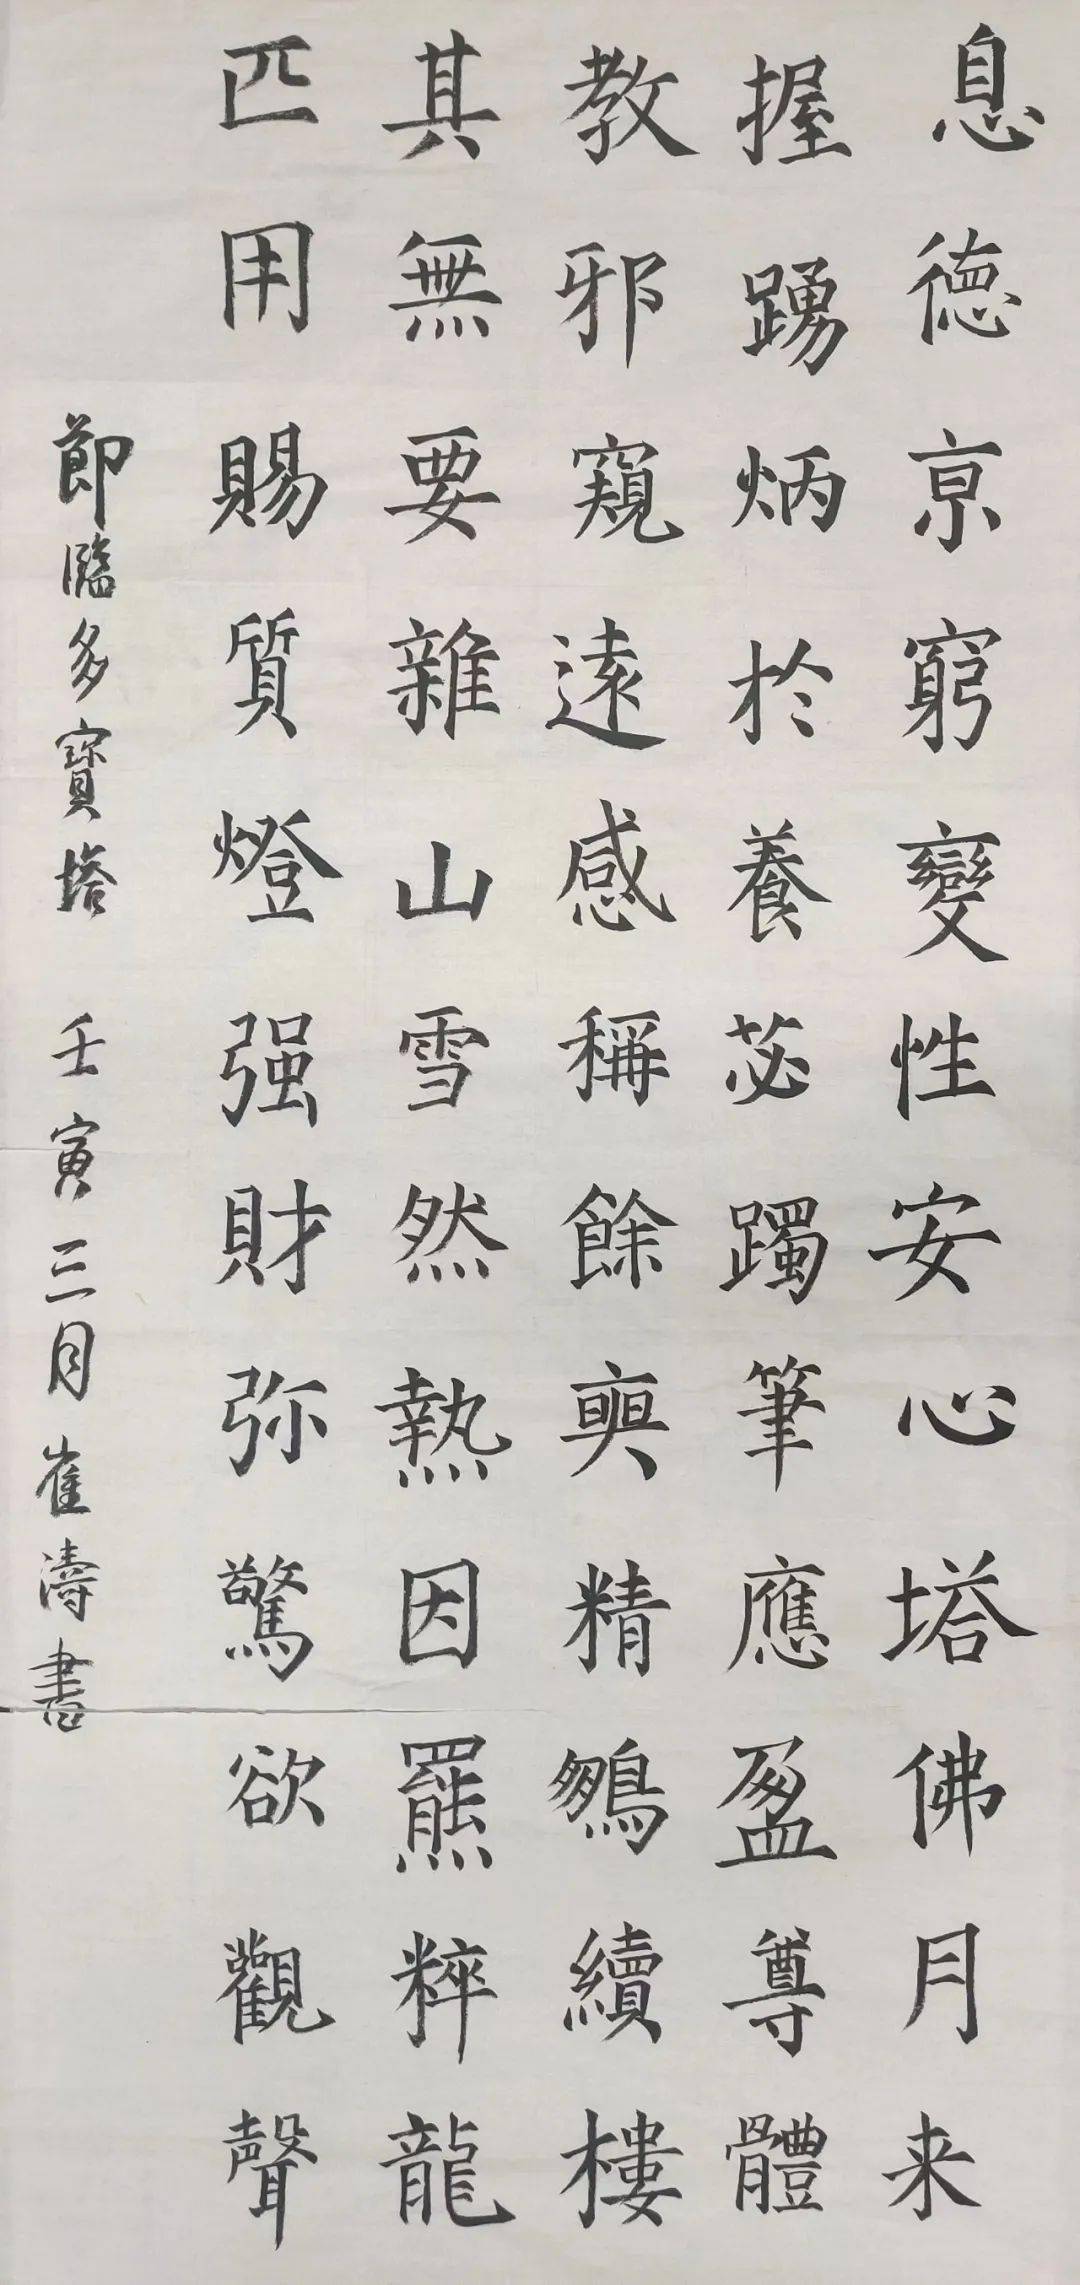 息德京窮變性安心塔佛月来
握踴炳於養苾躅筆應盈尊體
教邪窺遠感稱餘爽精鶵續樓
其無要雜山雪然熱因羆粹龍
匹用賜質燈强財弥驚欲觀聲
節臨多寶塔 壬寅三月崔濤書